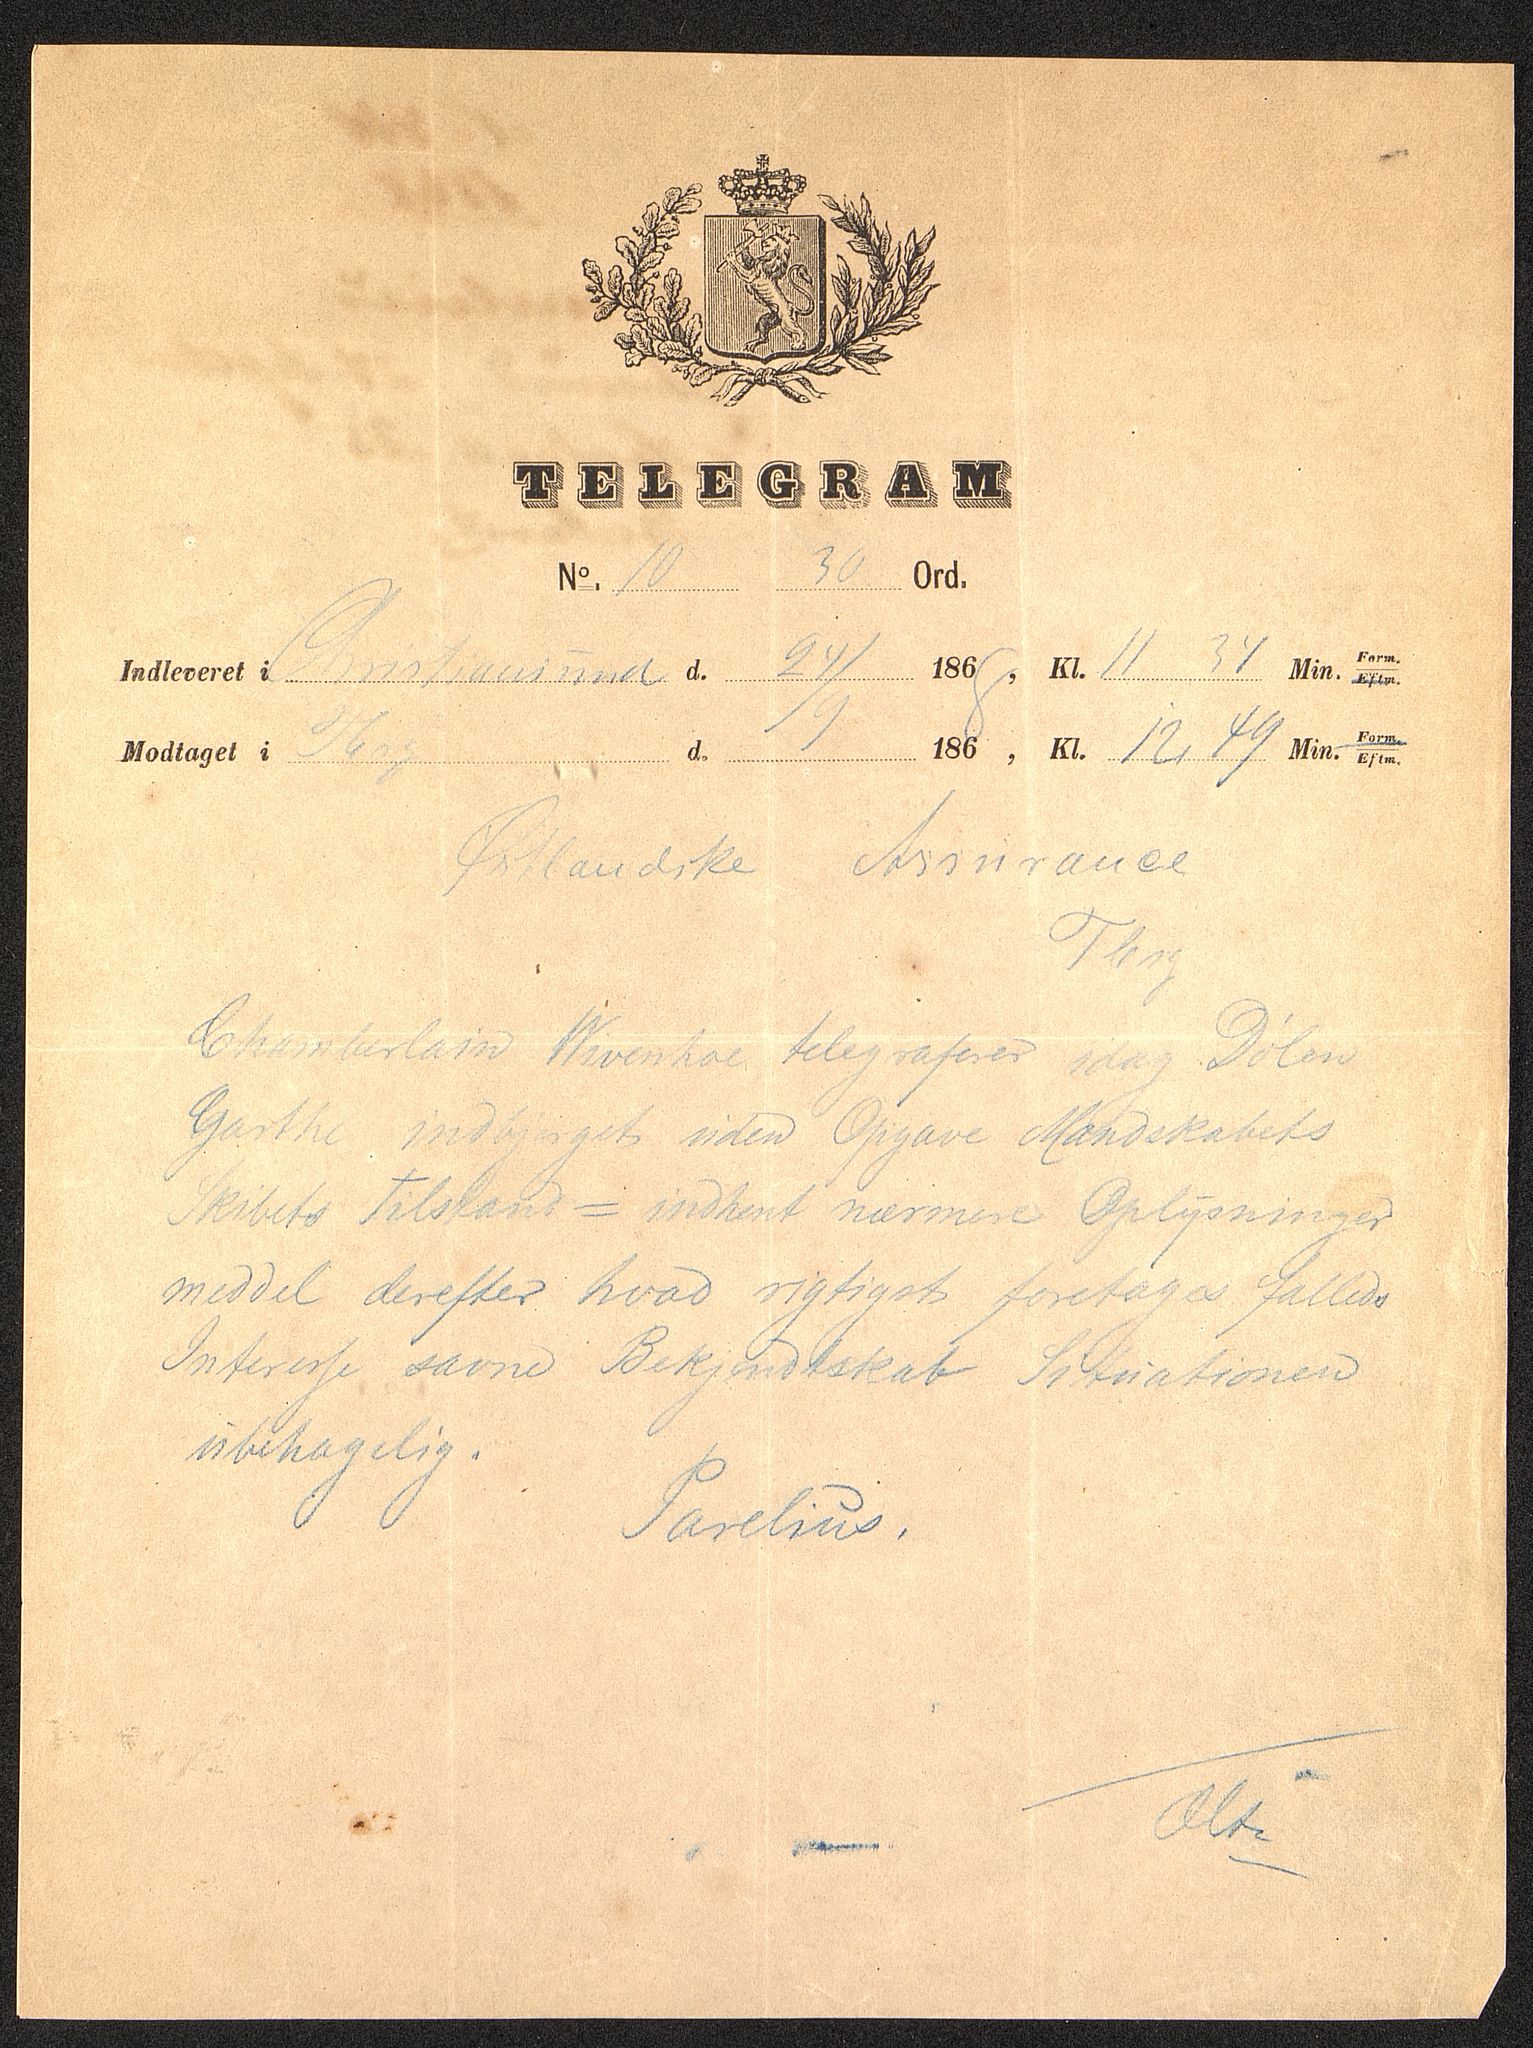 TELEGRAM
No. 10 30 Ord.
Indleveret i Christiansund d. 24/9 1868, Kl. 11 34 Min. Form. Eftm.
Modtaget i Tbrg d. 186 , Kl. 12,49 Min. Form. Eftm.
Østlandske Assurance
Tbrg
Chamberlain Wivenhoe telegraferer idag Dølen
Garthe indbjerget uden Opgave Mandskabets
Skibets Tilstand = indhent nærmere Oplysninger
meddel derefter hvad rigtigst foretages fælleds
Interesse savne Bekjendtskab Situationen
ubehagelig.
Parelius.